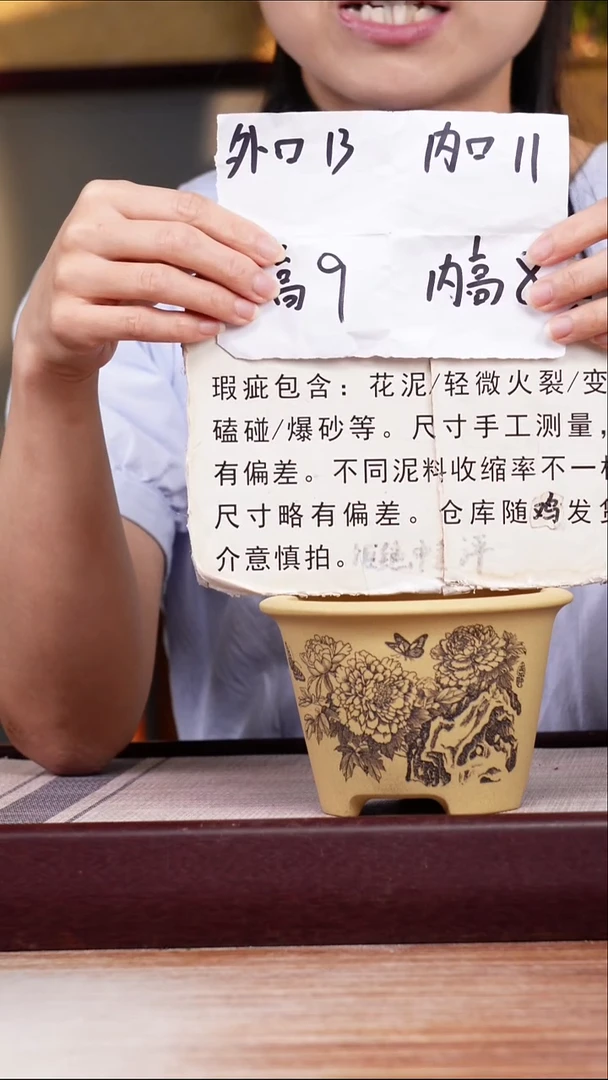 外口13 内口11
高9 内高8
瑕疵包含：花泥/轻微火裂/变
磕碰/爆砂等。尺寸手工测量，
有偏差。不同泥料收缩率不一样
尺寸略有偏差。仓库随鸡发货
介意慎拍。